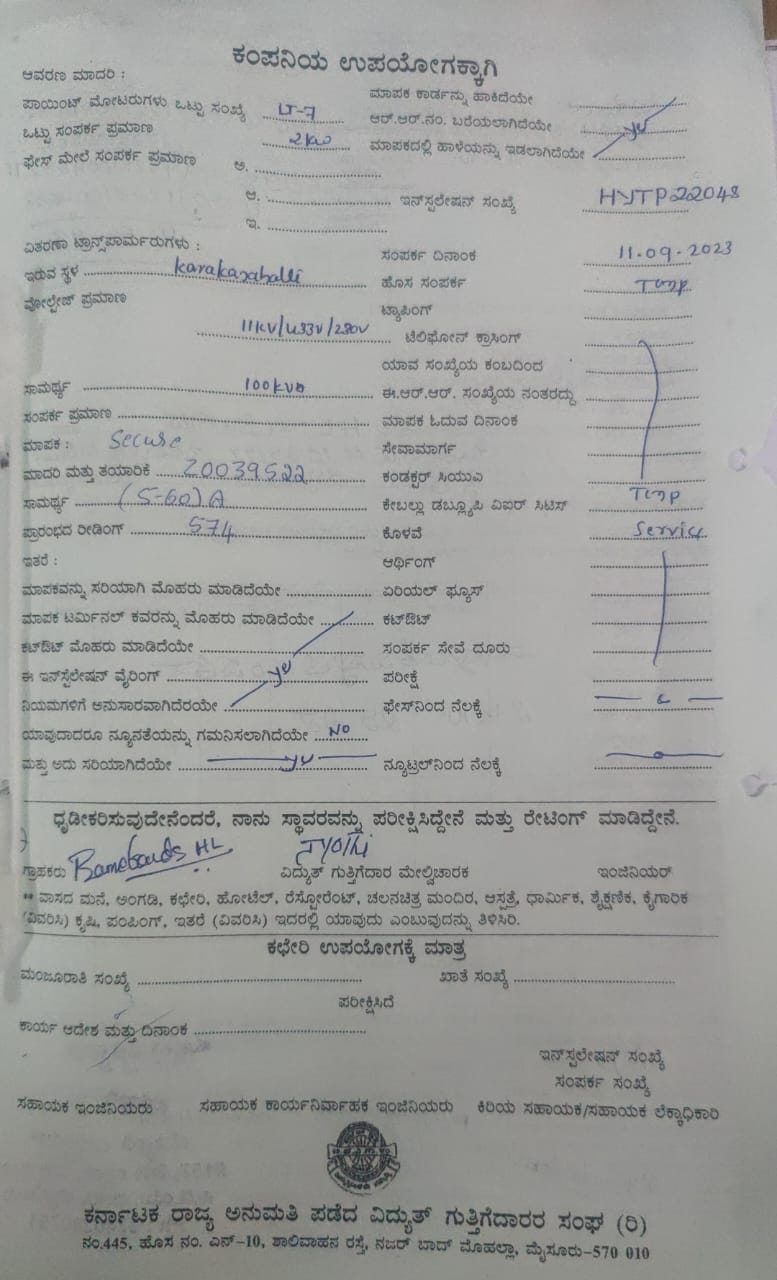 ಕಂಪನಿಯ ಉಪಯೋಗಕ್ಕಾಗಿ
ಆವರಣ ಮಾದರಿ :
ಪಾಯಿಂಟ್ ಮೋಟರುಗಳು ಒಟ್ಟು ಸಂಖ್ಯೆ LT-7 ಮಾಪಕ ಕಾರ್ಡನ್ನು ಹಾಕಿದೆಯೇ
ಒಟ್ಟು ಸಂಪರ್ಕ ಪ್ರಮಾಣ 2KW ಆರ್.ಆರ್.ನಂ. ಬರೆಯಲಾಗಿದೆಯೇ yes
ಫೇಸ್ ಮೇಲೆ ಸಂಪರ್ಕ ಪ್ರಮಾಣ ಅ. ಮಾಪಕದಲ್ಲಿ ಹಾಳೆಯನ್ನು ಇಡಲಾಗಿದೆಯೇ
ಆ. ಇನ್‌ಸ್ಟಲೇಷನ್ ಸಂಖ್ಯೆ HYTP22048
ಇ.
ವಿತರಣಾ ಟ್ರಾನ್ಸ್‌ಪಾರ್ಮರುಗಳು : ಸಂಪರ್ಕ ದಿನಾಂಕ 11.09.2023
ಇರುವ ಸ್ಥಳ ಹೊಸ ಸಂಪರ್ಕ Temp
ವೋಲ್ಟೇಜ್ ಪ್ರಮಾಣ ಟ್ಯಾಪಿಂಗ್
ಟೆಲಿಫೋನ್ ಕ್ರಾಸಿಂಗ್
ಯಾವ ಸಂಖ್ಯೆಯ ಕಂಬದಿಂದ
ಸಾಮರ್ಥ್ಯ 100KVA ಈ.ಆರ್.ಆರ್. ಸಂಖ್ಯೆಯ ನಂತರದ್ದು
ಸಂಪರ್ಕ ಪ್ರಮಾಣ ಮಾಪಕ ಓದುವ ದಿನಾಂಕ
ಮಾಪಕ : Secure ಸೇವಾಮಾರ್ಗ
ಮಾದರಿ ಮತ್ತು ತಯಾರಿಕೆ 20039522 ಕಂಡಕ್ಟರ್ ಸಿಯುಎ
ಸಾಮರ್ಥ್ಯ (5-60) A ಕೇಬಲ್ಲು ಡಬ್ಲ್ಯೂಪಿ ವಿಐರ್ ಸಿಟಿಸ್ Temp
ಪ್ರಾರಂಭದ ರೀಡಿಂಗ್ 574 ಕೊಳವೆ Service
ಇತರೆ : ಆರ್ಥಿಂಗ್
ಮಾಪಕವನ್ನು ಸರಿಯಾಗಿ ಮೊಹರು ಮಾಡಿದೆಯೇ ಏರಿಯಲ್ ಫ್ಯೂಸ್
ಮಾಪಕ ಟರ್ಮಿನಲ್ ಕವರನ್ನು ಮೊಹರು ಮಾಡಿದೆಯೇ ಕಟ್‌ಔಟ್
ಕಟ್‌ಔಟ್ ಮೊಹರು ಮಾಡಿದೆಯೇ ಸಂಪರ್ಕ ಸೇವೆ ದೂರು
ಈ ಇನ್‌ಸ್ಟಲೇಷನ್ ವೈರಿಂಗ್ yes ಪರೀಕ್ಷೆ
ನಿಯಮಗಳಿಗೆ ಅನುಸಾರವಾಗಿದೆರಯೇ ಫೇಸ್‌ನಿಂದ ನೆಲಕ್ಕೆ
ಯಾವುದಾದರೂ ನ್ಯೂನತೆಯನ್ನು ಗಮನಿಸಲಾಗಿದೆಯೇ NO
ಮತ್ತು ಅದು ಸರಿಯಾಗಿದೆಯೇ yes ನ್ಯೂಟ್ರಲ್‌ನಿಂದ ನೆಲಕ್ಕೆ
ಧೃಡೀಕರಿಸುವುದೇನೆಂದರೆ, ನಾನು ಸ್ಥಾವರವನ್ನು ಪರೀಕ್ಷಿಸಿದ್ದೇನೆ ಮತ್ತು ರೇಟಿಂಗ್ ಮಾಡಿದ್ದೇನೆ.
ಗ್ರಾಹಕರು ವಿದ್ಯುತ್ ಗುತ್ತಿಗೆದಾರ ಮೇಲ್ವಿಚಾರಕ ಇಂಜಿನಿಯರ್
** ವಾಸದ ಮನೆ, ಅಂಗಡಿ, ಕಛೇರಿ, ಹೋಟೆಲ್, ರೆಸ್ಟೋರೆಂಟ್, ಚಲನಚಿತ್ರ ಮಂದಿರ, ಆಸ್ಪತ್ರೆ, ಧಾರ್ಮಿಕ, ಶೈಕ್ಷಣಿಕ, ಕೈಗಾರಿಕ
(ವಿವರಿಸಿ) ಕೃಷಿ, ಪಂಪಿಂಗ್, ಇತರೆ (ವಿವರಿಸಿ) ಇದರಲ್ಲಿ ಯಾವುದು ಎಂಬುವುದನ್ನು ತಿಳಿಸಿರಿ.
ಕಛೇರಿ ಉಪಯೋಗಕ್ಕೆ ಮಾತ್ರ
ಮಂಜೂರಾತಿ ಸಂಖ್ಯೆ ಖಾತೆ ಸಂಖ್ಯೆ
ಪರೀಕ್ಷಿಸಿದೆ
ಕಾರ್ಯ ಆದೇಶ ಮತ್ತು ದಿನಾಂಕ
ಇನ್‌ಸ್ಟಲೇಷನ್ ಸಂಖ್ಯೆ
ಸಂಪರ್ಕ ಸಂಖ್ಯೆ
ಸಹಾಯಕ ಇಂಜಿನಿಯರು ಸಹಾಯಕ ಕಾರ್ಯನಿರ್ವಾಹಕ ಇಂಜಿನಿಯರು ಕಿರಿಯ ಸಹಾಯಕ/ಸಹಾಯಕ ಲೆಕ್ಕಾಧಿಕಾರಿ
ಕರ್ನಾಟಕ ರಾಜ್ಯ ಅನುಮತಿ ಪಡೆದ ವಿದ್ಯುತ್ ಗುತ್ತಿಗೆದಾರರ ಸಂಘ (ರಿ)
ನಂ.445, ಹೊಸ ನಂ. ಎನ್-10, ಶಾಲಿವಾಹನ ರಸ್ತೆ, ನಜರ್ ಬಾದ್ ಮೊಹಲ್ಲಾ, ಮೈಸೂರು-570 010